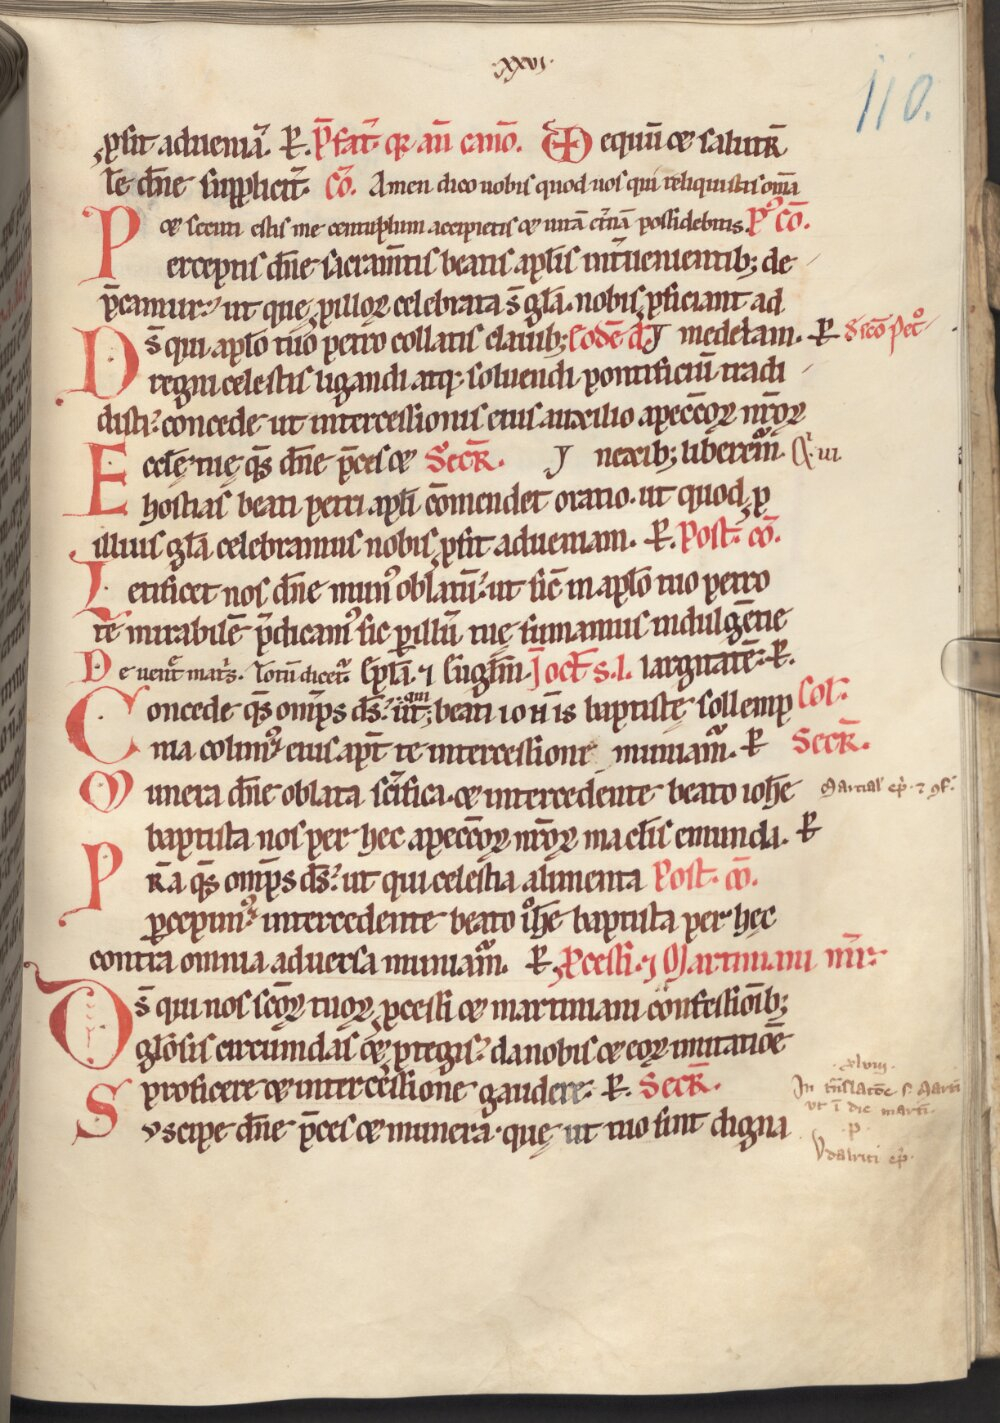 ·xxvi·
110.
ꝓsit adueniā. ꝶ. p̄fat̄. qͥr. an̄. cano̅. Vꝰe equū ⁊ salutā̅
re dn̄e suppliciter̄. Co̅. Amen dico uobis quod uos qui reliquistis om̄a
⁊ secuti estis me centuplum accipietis ⁊ uitā et̄nā possidebitis. P̊ co̅.
Perceptis dn̄e sacram̄tis beatis apl̄is int̄uenientib; de
p̄camur: ut quę ꝓ illoꝝ celebrata s̄ gl̄a. nobis ꝓficiant ad
medelam. ꝶ
Ds̄ qui apl̄o tuo petro collatis clauib; Eodē d̄
regni celestis ligandi atq; soluendi pontificiū tradi
disti: concede ut intercessionis eius auxilio peccatoꝝ nr̄oꝝ
nexib; liberem̄. iii
Eccl̄ę tuę qs̄ dn̄e p̄ces ⁊ Secr̄.
hostias beati petri apl̄i com̄endet oratio. ut quod ꝓ
illius gl̄a celebramus nobis ꝓsit adueniam. ꝶ. Post. co̅.
Letificet nos dn̄e munꝰ oblatū: ut sic̄ in apl̄o tuo petro
te mirabilē p̄dicamꝰ sic ꝑ illū tuę sumamus indulgētie
largitatē. ꝶ.
De uent̄ mat̄s. totū dicet̄ Epl̄a. ⁊ Eu͛glm̄. J oct̄ s. J.
Concede qs̄ omp̄s ds̄: ut qui beati ioħis baptistę sollemp Col̄.
nia colimꝰ: eius apt̄ te intercessione muniam̄. ꝶ Secr̄.
Munera dn̄e oblata sc̄ifica. ⁊ intercedente beato ioħe
Martial' ep̄i ⁊ ꝯf.
baptista nos per hec a peccatoꝝ nr̄oꝝ maculis emunda. ꝶ
Pr̄a qs̄ omp̄s ds̄: ut qui celestia alimenta Post. co̅.
ꝑcepimꝰ: intercedente beato ioħe baptista per hec
contra omnia aduersa muniam̄. ꝶ. Processi. ⁊ Martiniani m̄r.
Ds̄ qui nos sc̄oꝝ tuoꝝ ꝓcessi ⁊ martiniani confessiōib;
gl̄osis circumdas ⁊ ꝓtegis: da nobis ⁊ eoꝝ imitatiōe
proficere ⁊ intercessione gaudere. ꝶ. Secr̄.
Suscipe dn̄e p̄ces ⁊ munera. quę ut tuo sint digna
xlviii.
In tn̄slatōe s. Marti
ut ī die marti.
p.
Vdalrici ep̄i.